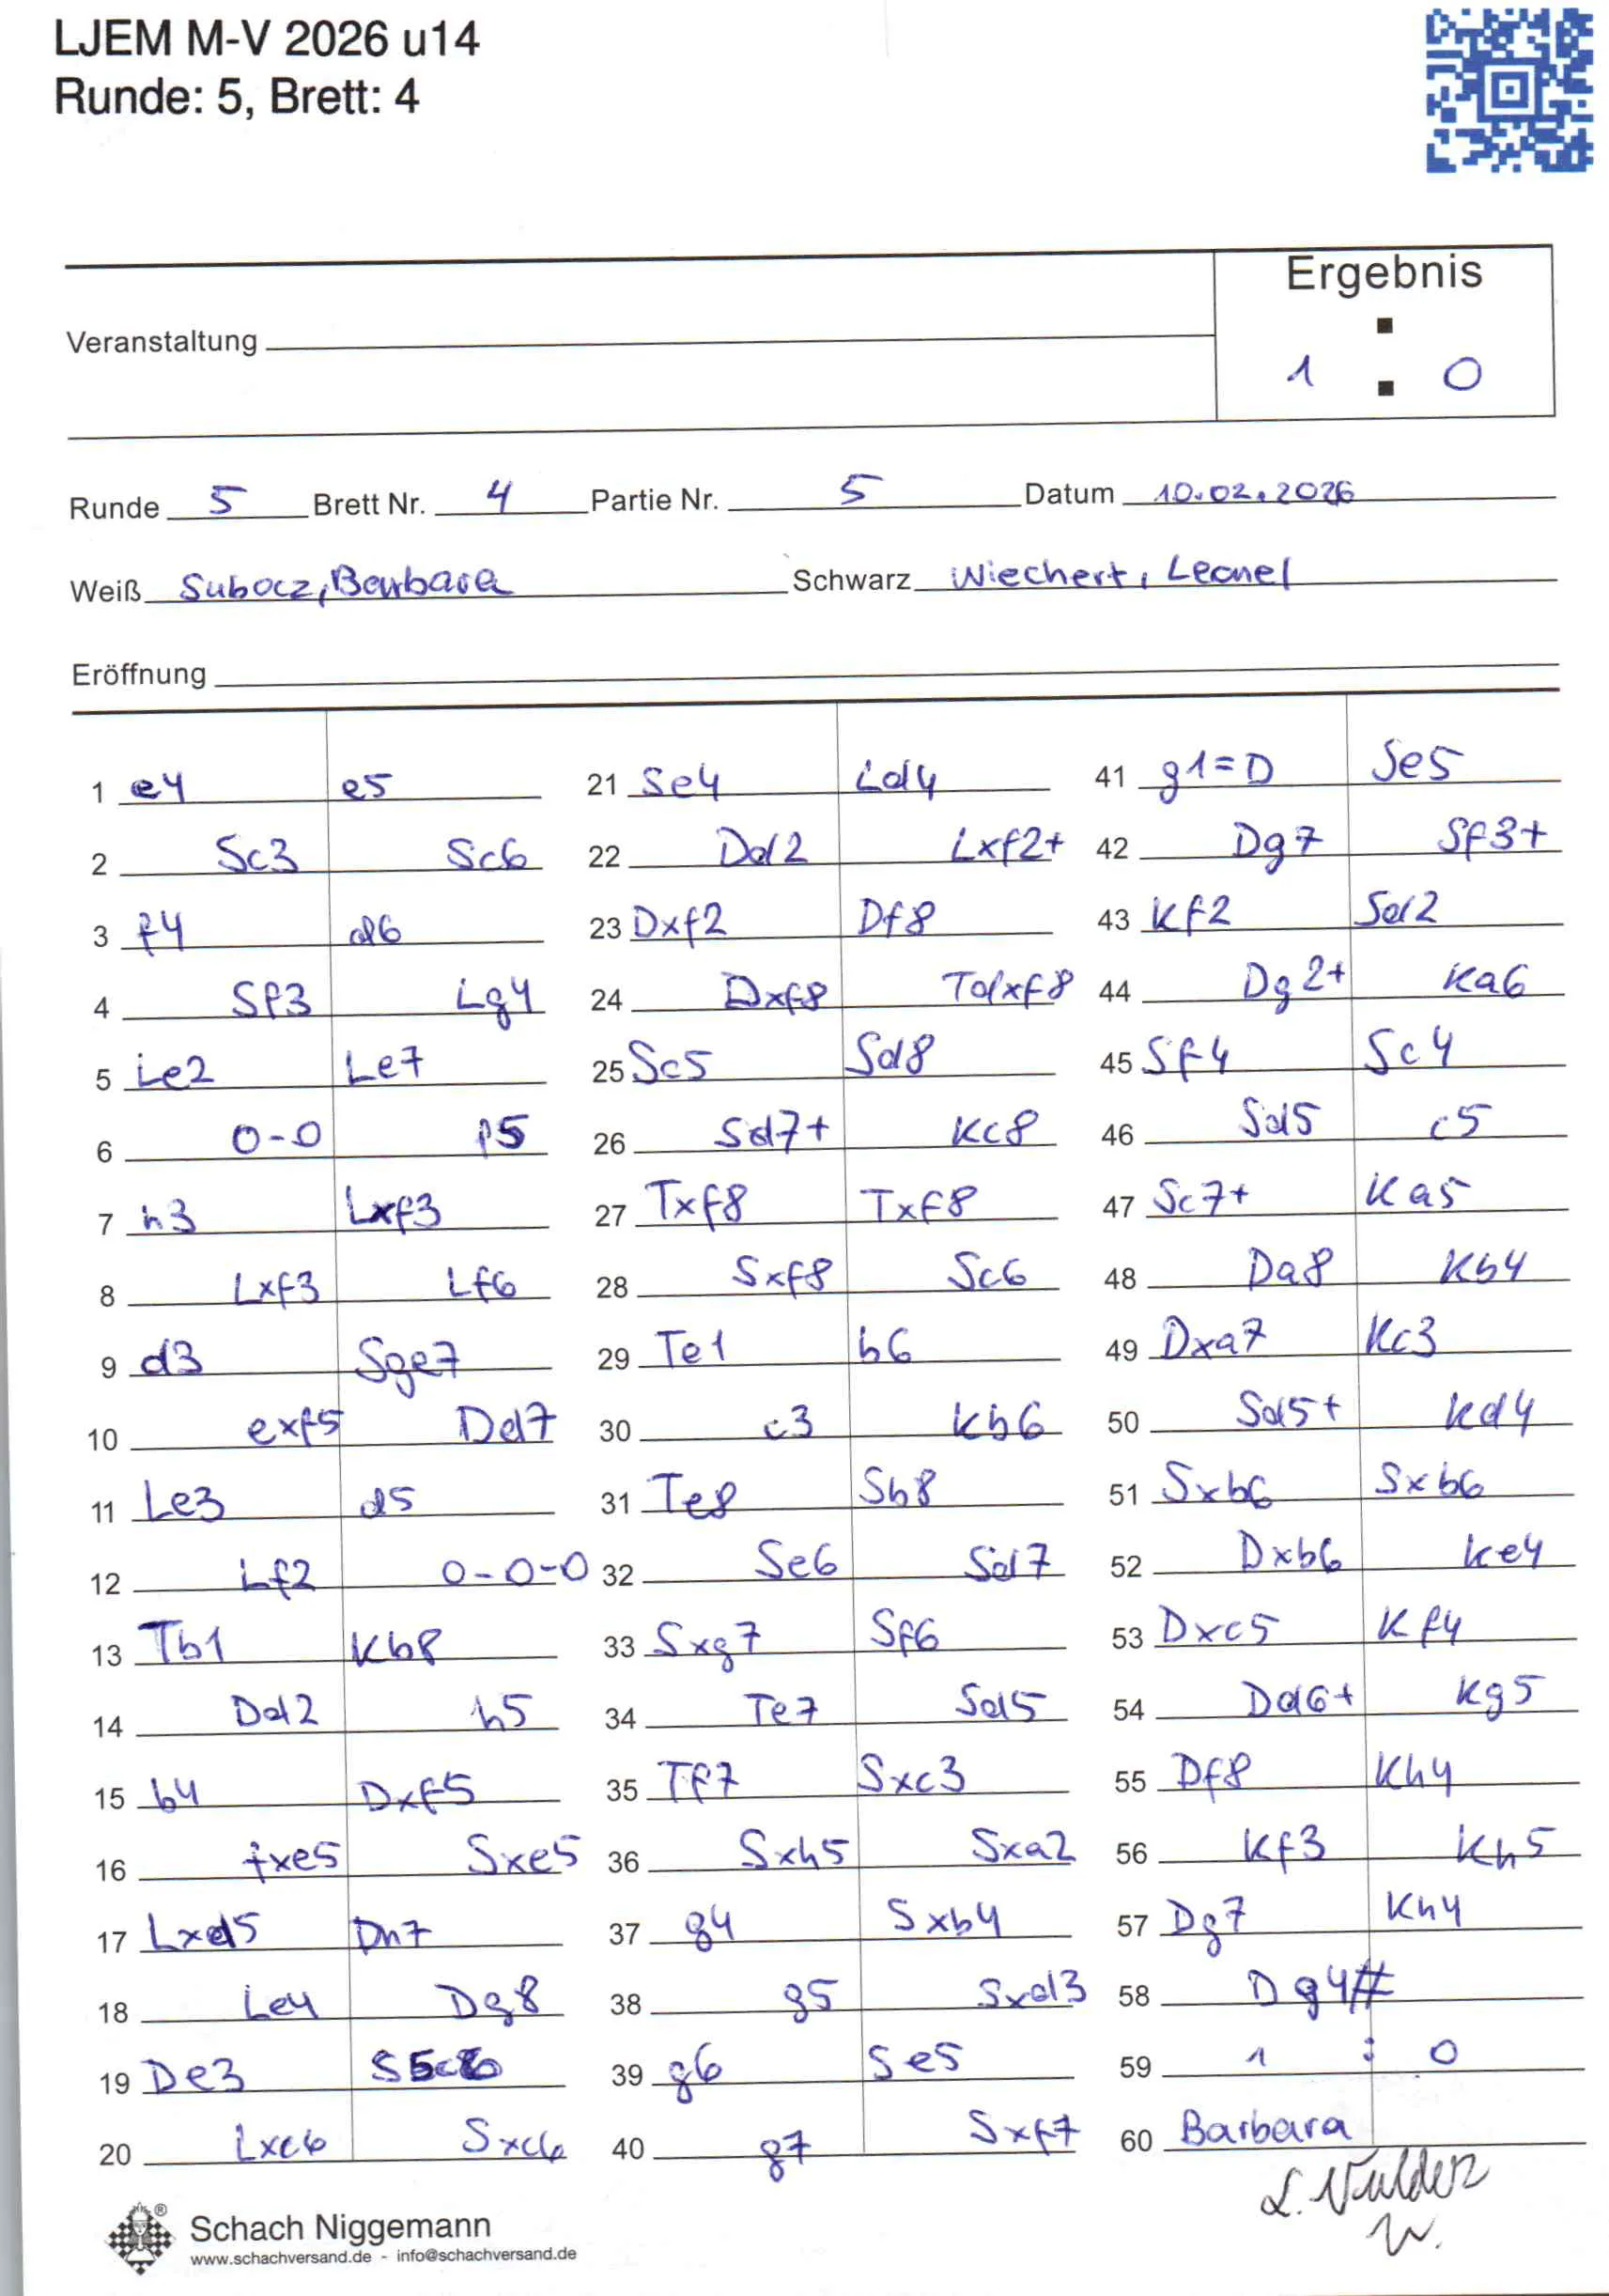 LJEM M-V 2026 u14
Runde: 5, Brett: 4
Ergebnis
Veranstaltung
1 : 0
Runde 5 Brett Nr. 4 Partie Nr. 5 Datum 10.02.2026
Weiß Subocz, Barbara Schwarz Wiechert, Leonel
Eröffnung
1 e4 e5 21 Se4 Ld4 41 g1=D Se5
2 Sc3 Sc6 22 Dd2 Lxf2+ 42 Dg7 Sf3+
3 f4 d6 23 Dxf2 Df8 43 Kf2 Sd2
4 Sf3 Lg4 24 Dxf8 Tdxf8 44 Dg2+ Ka6
5 Le2 Le7 25 Sc5 Sd8 45 Sf4 Sc4
6 0-0 f5 26 Sd7+ Kc8 46 Sd5 c5
7 h3 Lxf3 27 Txf8 Txf8 47 Sc7+ Ka5
8 Lxf3 Lf6 28 Sxf8 Sc6 48 Da8 Kb4
9 d3 Sge7 29 Te1 b6 49 Dxa7 Kc3
10 exf5 Dd7 30 c3 Kb6 50 Sd5+ Kd4
11 Le3 d5 31 Te8 Sb8 51 Sxb6 Sxb6
12 Lf2 0-0-0 32 Se6 Sd7 52 Dxb6 Ke4
13 Tb1 Kb8 33 Sxg7 Sf6 53 Dxc5 Kf4
14 Dd2 h5 34 Te7 Sd5 54 Dd6+ Kg5
15 b4 Dxf5 35 Tf7 Sxc3 55 Df8 Kh4
16 fxe5 Sxe5 36 Sxh5 Sxa2 56 Kf3 Kh5
17 Lxd5 Dh7 37 g4 Sxb4 57 Dg7 Kh4
18 Le4 Dg8 38 g5 Sxd3 58 Dg4#
19 De3 39 g6 Se5 59 1 : 0
20 Lxc6 Sxc6 40 g7 Sxf7 60 Barbara
Schach Niggemann
www.schachversand.de - info@schachversand.de